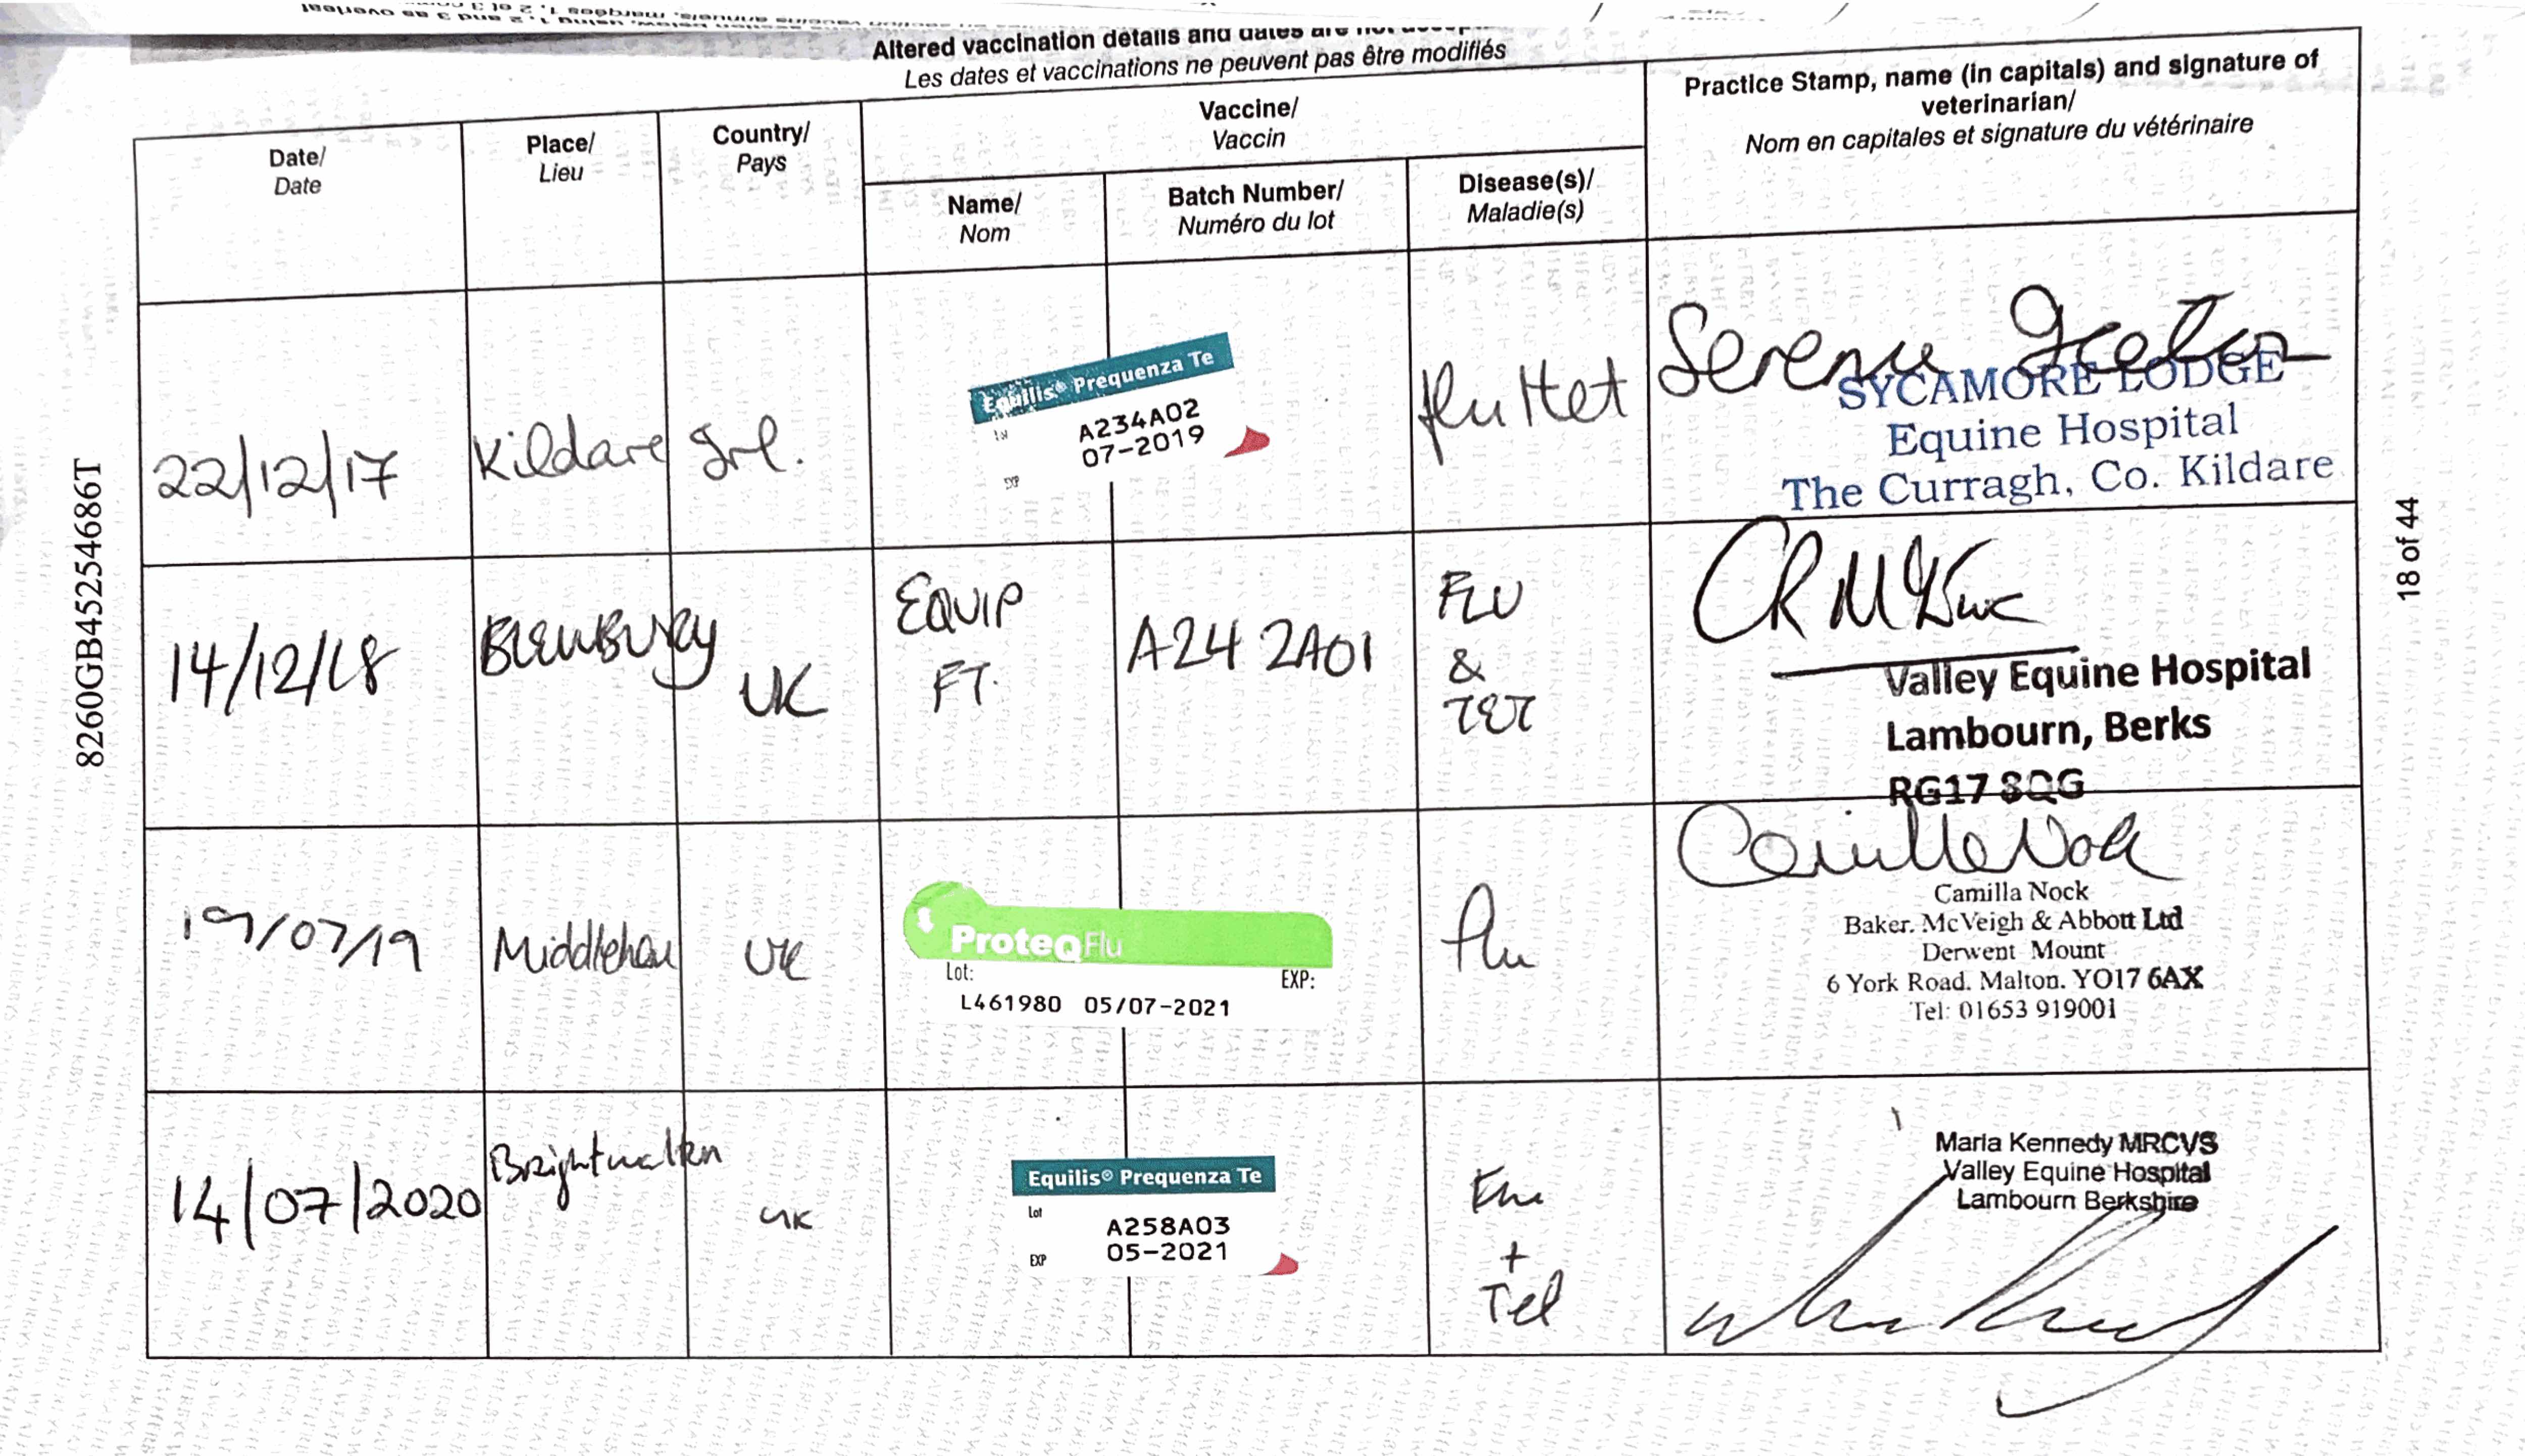 Altered vaccination details and dates are not
Les dates et vaccinations ne peuvent pas être modifiés
Date/
Date
Place/
Lieu
Country/
Pays
Vaccine/
Vaccin
Name/
Nom
Batch Number/
Numéro du lot
Disease(s)/
Maladie(s)
Practice Stamp, name (in capitals) and signature of
veterinarian/
Nom en capitales et signature du vétérinaire
22/12/17
Kildare
Irl.
Equilis® Prequenza Te
A234A02
07-2019
EXP
flu + tet
SYCAMORE LODGE
Equine Hospital
The Curragh, Co. Kildare
14/12/18
BLEWBURY
UK
EQUIP
FT.
A24 2A01
FLU
&
TET
Valley Equine Hospital
Lambourn, Berks
RG17 8QG
19/07/19
Middleham
UK
ProteqFlu
Lot:
EXP:
L461980 05/07-2021
flu
Camilla Nock
Camilla Nock
Baker. McVeigh & Abbott Ltd
Derwent Mount
6 York Road. Malton. YO17 6AX
Tel: 01653 919001
14/07/2020
Brightwalton
UK
Equilis® Prequenza Te
Lot
A258A03
EXP
05-2021
Flu
+
Tet
Maria Kennedy MRCVS
Valley Equine Hospital
Lambourn Berkshire
8260GB45254686T
18 of 44